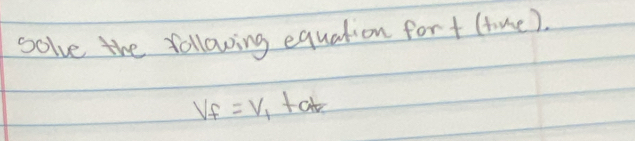 Solve the following equation for t (time).
Vf = V₁ + at